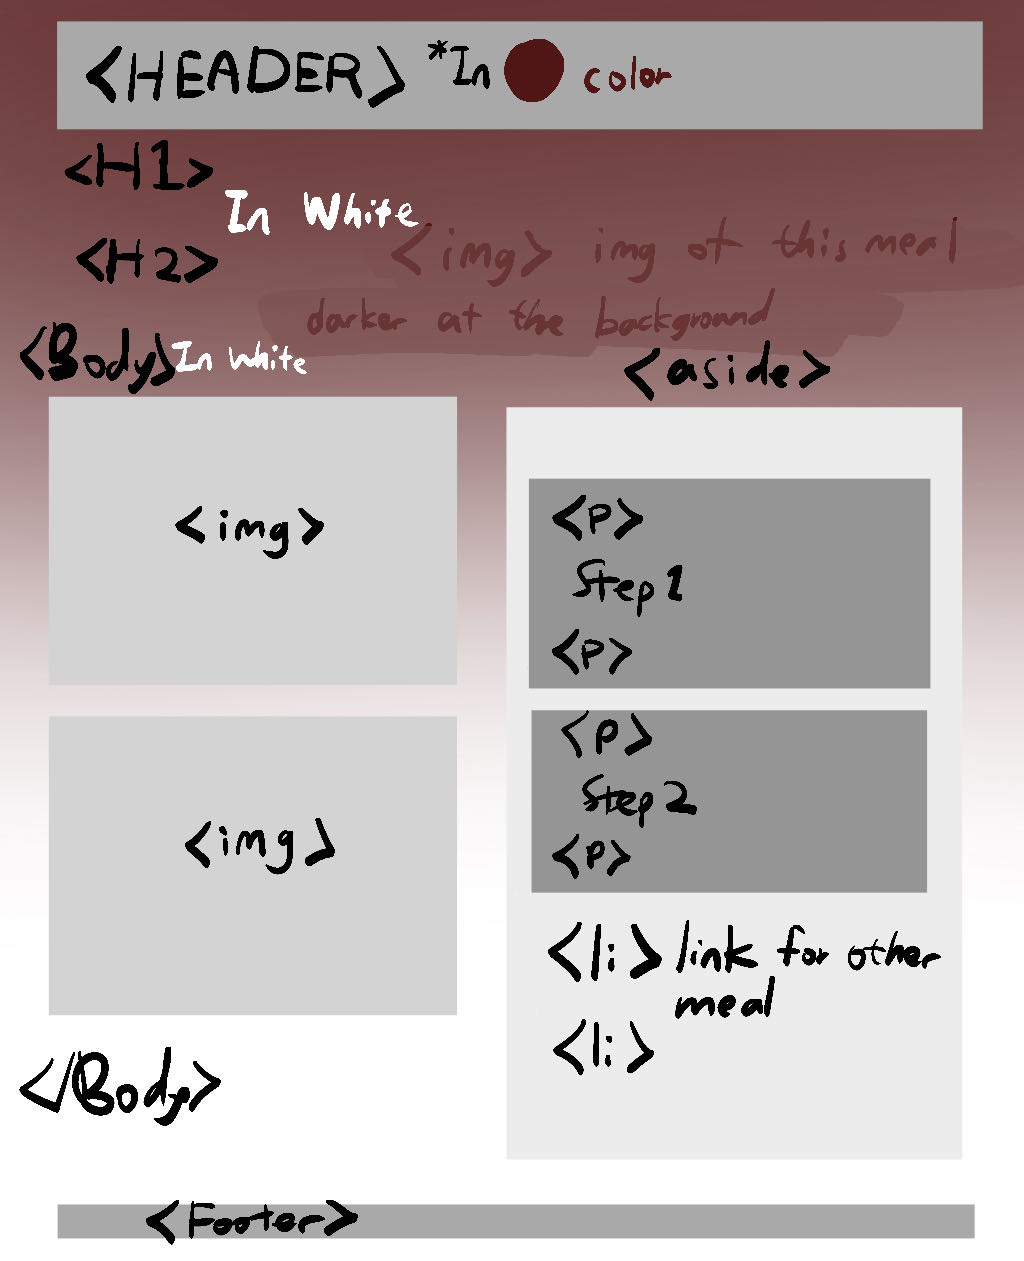 <HEADER> *In color
<H1>
In White
<H2>
<img> img of this meal
darker at the background
<Body> In white
<aside>
<img>
<P>
Step 1
<P>
<img>
<P>
Step 2
<P>
<li> link for other
meal
<li>
</Body>
<Footer>